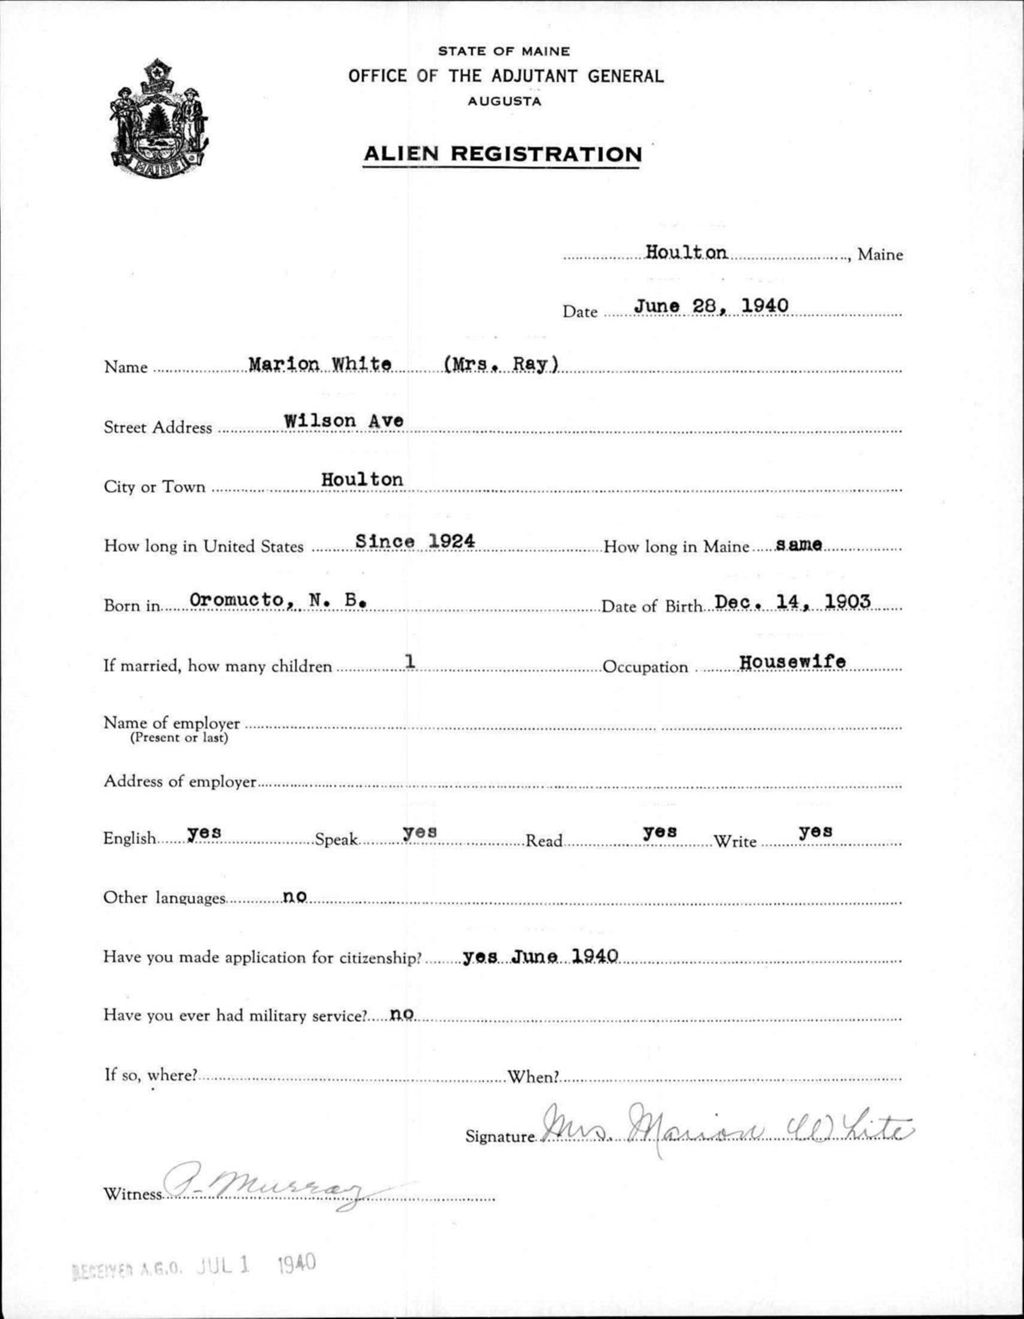 STATE OF MAINE
OFFICE OF THE ADJUTANT GENERAL
AUGUSTA
ALIEN REGISTRATION
MAINE
Houlton, Maine
Date June 28, 1940
Name Marion White (Mrs. Ray)
Street Address Wilson Ave
City or Town Houlton
How long in United States Since 1924 How long in Maine same
Born in Oromucto, N. B. Date of Birth Dec. 14, 1903
If married, how many children 1 Occupation Housewife
Name of employer
(Present or last)
Address of employer
English yes Speak yes Read yes Write yes
Other languages no
Have you made application for citizenship? yes June 1940
Have you ever had military service? no
If so, where? When?
Signature Mrs. Marion White
Witness P. Murray
RECEIVED A.G.O. JUL 1 1940